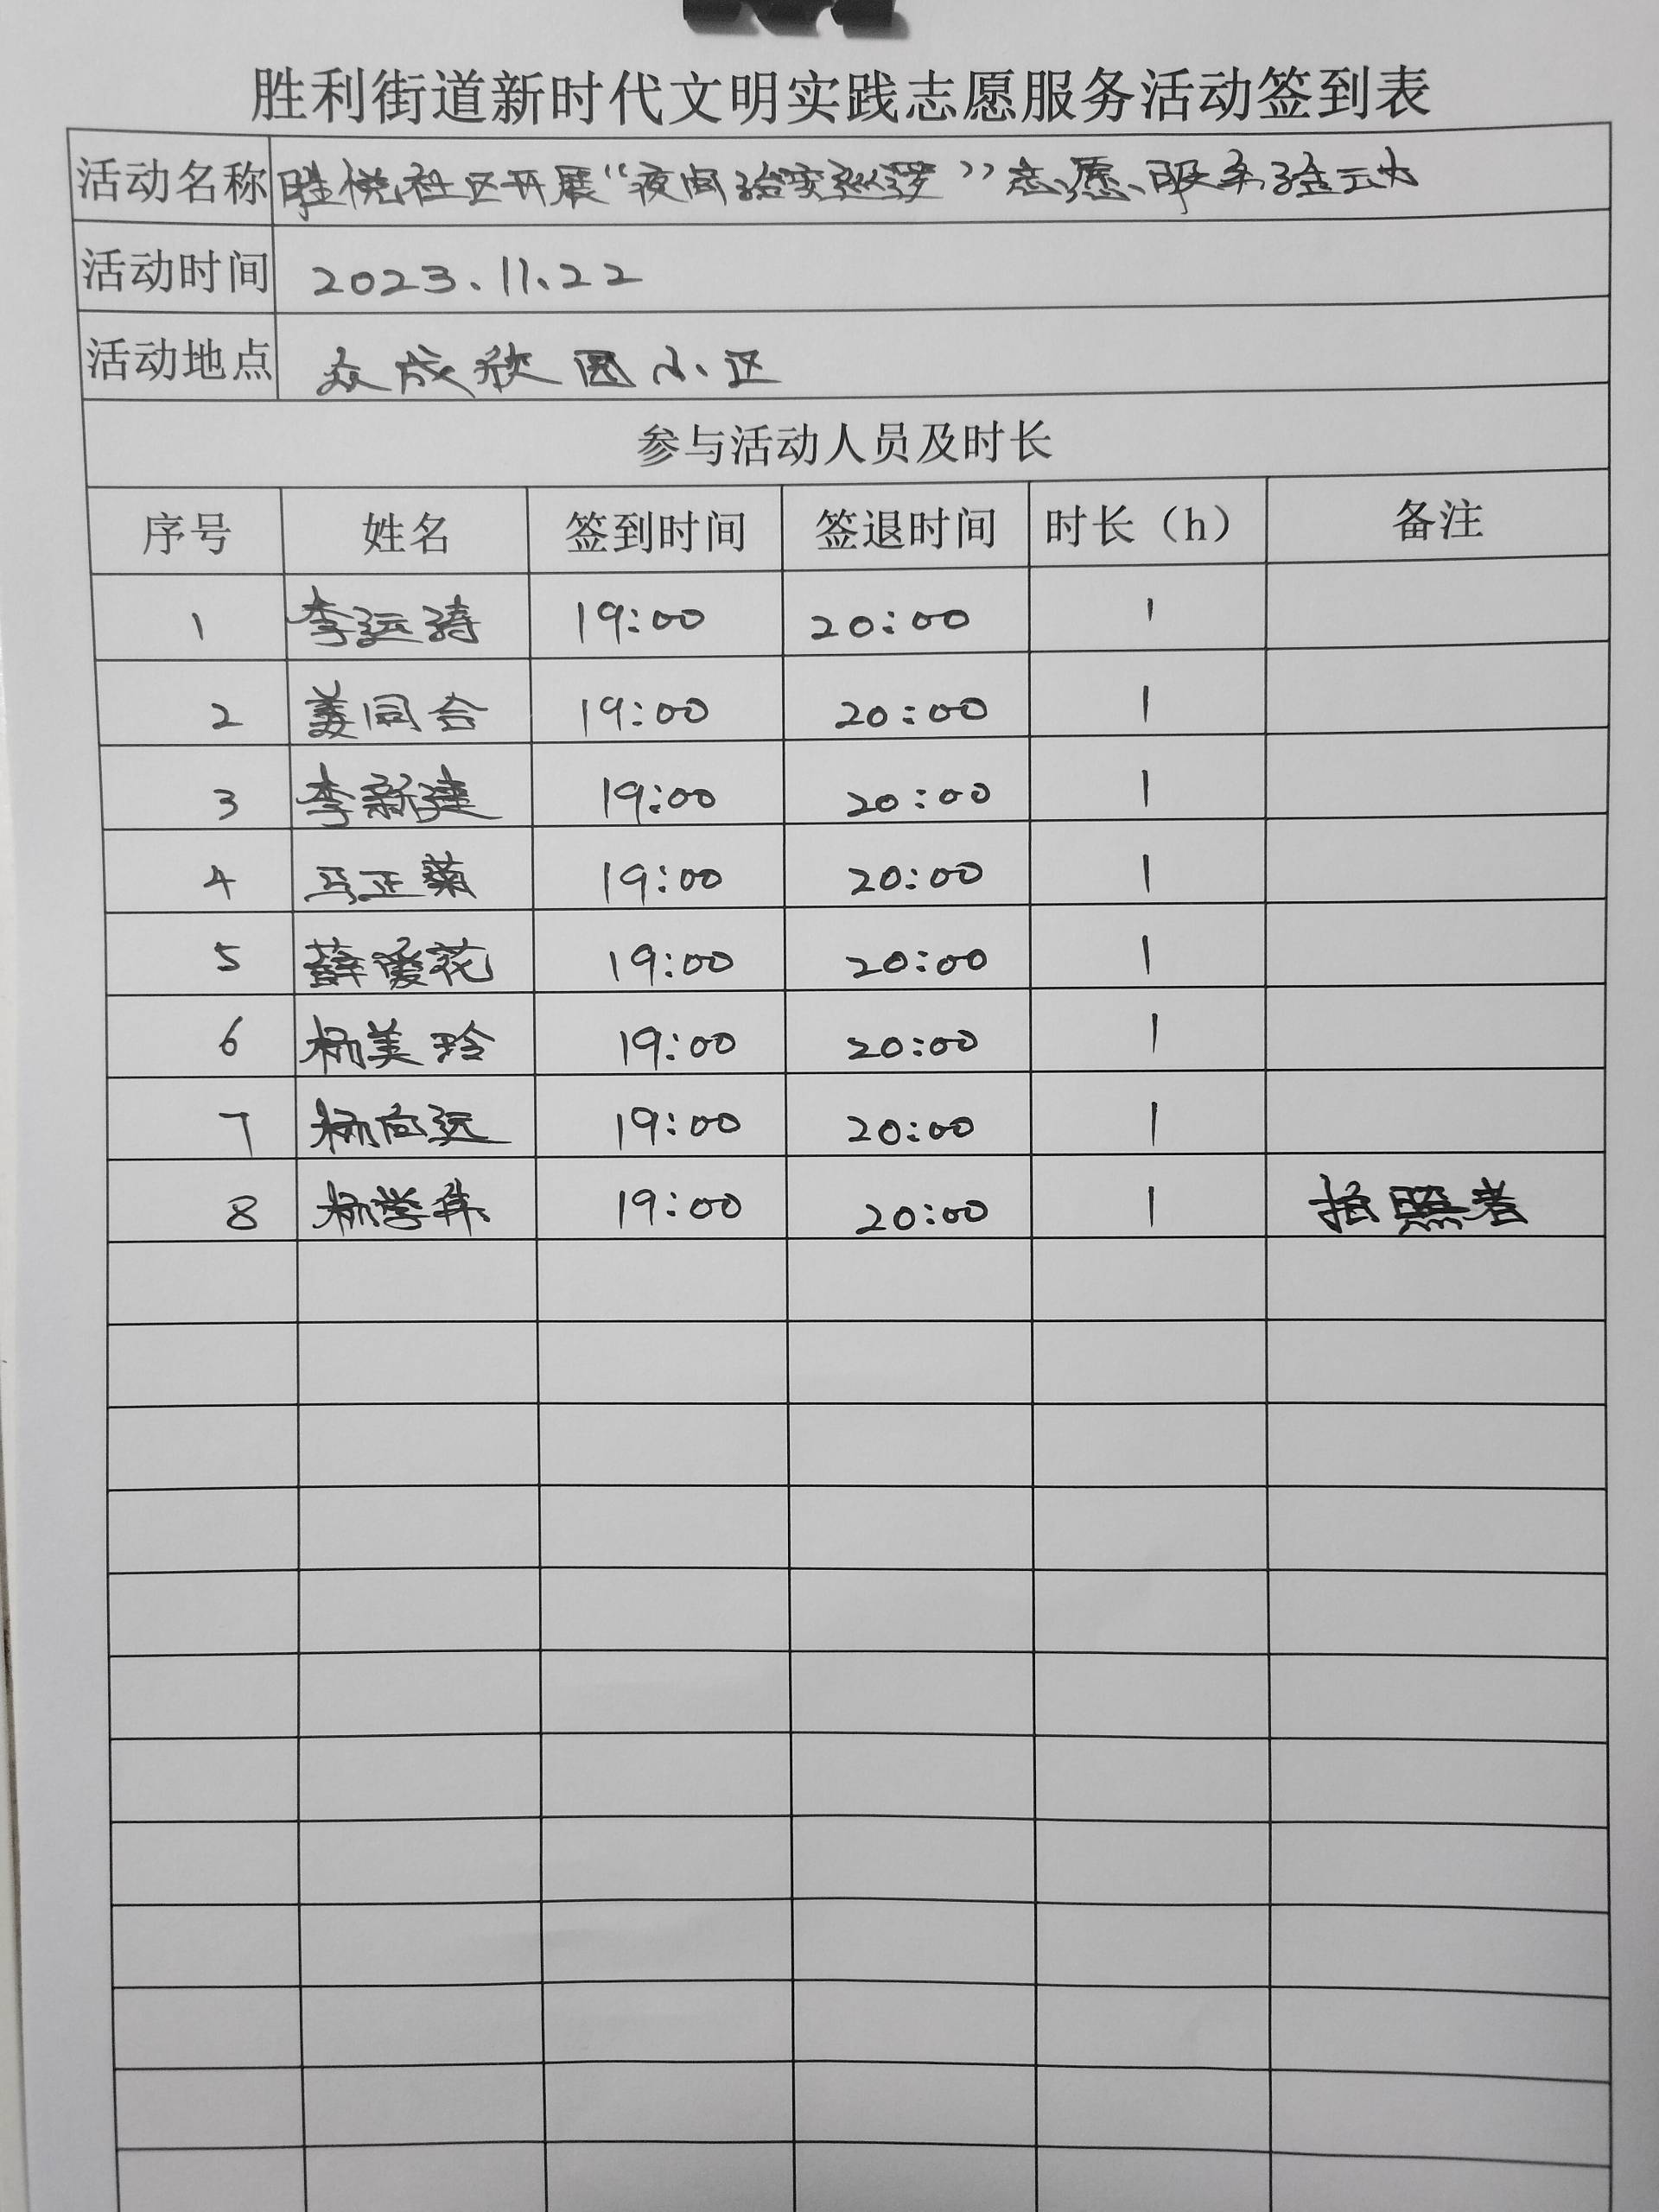 胜利街道新时代文明实践志愿服务活动签到表
活动名称 胜悦社区开展“夜间治安巡逻”志愿服务活动
活动时间 2023.11.22
活动地点 众成欣园小区
参与活动人员及时长
序号 姓名 签到时间 签退时间 时长（h） 备注
1 李运涛 19:00 20:00 1
2 姜同合 19:00 20:00 1
3 李新建 19:00 20:00 1
4 马正菊 19:00 20:00 1
5 薛爱花 19:00 20:00 1
6 杨美玲 19:00 20:00 1
7 杨向远 19:00 20:00 1
8 杨学 19:00 20:00 1 拍照者